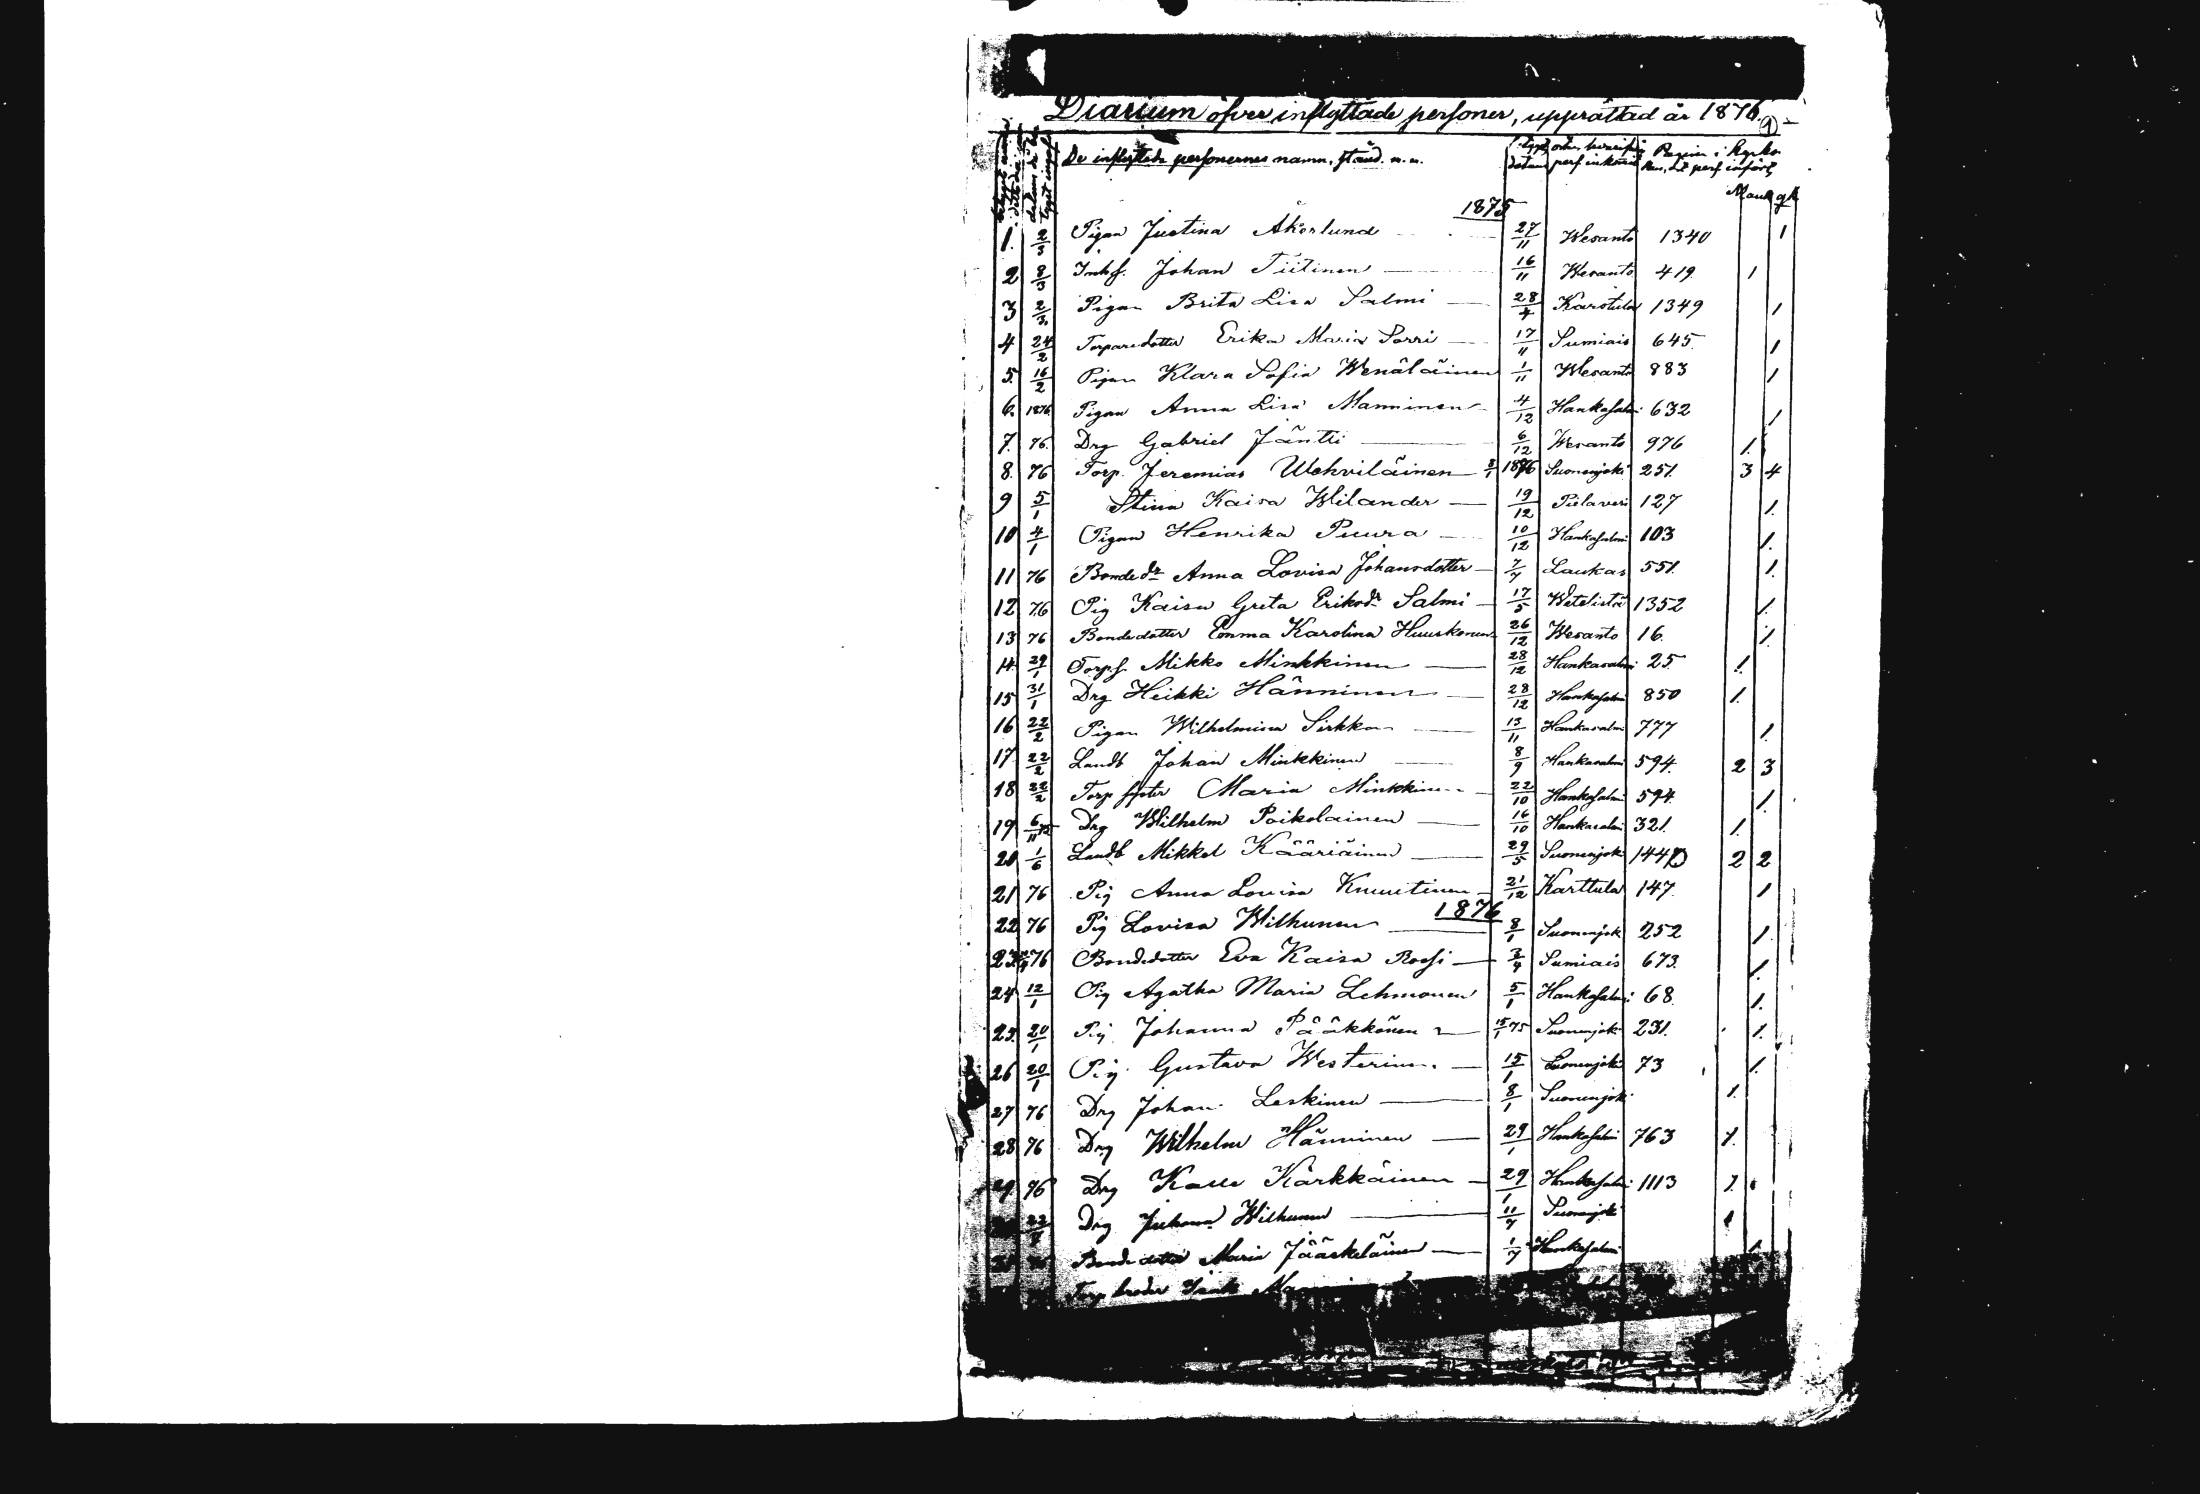 Diarium öfver inflyttade personer, upprättad år 1876.
De inflyttade personernes namn, stånd. m.m. datum Pagina i Kyrko
Mank qk
1875
1. 2/3 Pigan Justina Åkerlund 27/11 Wesanto 1340 1
2 8/3 Inhs. Johan Tiitinen 16/11 Wesanto 419. 1
3 2/3. Pigan Brita Lisa Salmi 28/4 Karstula 1349 1
4 24/2 Torparedotter Erika Maria Sorri 17/11 Sumiais 645. 1
5. 16/2 Pigan Klara Sofia Wenäläinen 1/11 Wesanto 883 1
6. 1876 Pigan Anna Lisa Manninen 4/12 Hankasalmi 632 1
7. 76. Drg Gabriel Jäntti 6/12 Wesanto 976 1.
8. 76 Torp. Jeremias Wehviläinen 8/1 1876 Suonenjoki 251. 3 4
9 5/1 Stina Kaisa Wilander 19/12 Pielavesi 127 1.
10 4/1 Pigan Henrika Puura 10/12 Hankasalmi 103 1.
11 76 Bonde dr Anna Lovisa Johansdotter 7/7 Laukas 551. 1.
12 76 Pig Kaisa Greta Eriksdr Salmi 17/5 1352 1.
13 76 Bondedotter Emma Karolina Huuskonen 26/12 Wesanto 16. 1.
14. 29/1 Torp.s. Mikko Minkkinen 28/12 Hankasalmi 25 1.
15 31/1 Drg Heikki Hänninen 28/12 Hankasalmi 850 1.
16 22/2 Pigan Wilhelmina Sirkka 13/11 Hankasalmi 777 1.
17 22/2 Landb Johan Minkkinen 8/9 Hankasalmi 594. 2 3
18 22/2 Torp syster Maria Minkkinen 22/10 Hankasalmi 594. 1.
19 6/11 75 Drg Wilhelm Poikolainen 16/10 Hankasalmi 321. 1.
20 1/6 Landb Mikkel Kääriäinen 29/5 Suonenjoki 144 2 2
21 76 Pig Anna Lovisa Knuutinen 21/12 Karttula 147. 1
1876
22. 76 Pig Lovisa Wilhunen 8/1 Suonenjok 252 1.
23. 76 Bondedotter Eva Kaisa Rossi 3/4 Sumiais 673. 1.
24 12/1 Pig Agatha Maria Lehmonen 5/1 Hankasalmi 68. 1.
25. 20/1 Pig Johanna Pääkkönen 15/1 75 Suonenjoki 231. 1.
26 20/1 Pig. Gustava Westerinen 15/1 Suonenjoki 73 1.
27 76 Drg Johan Leskinen 8/1 Suonenjoki 1.
28 76 Drg Wilhelm Hänninen 29/1 Hankasalmi 763 1.
29. 76 Drg Kalle Kärkkäinen 29/1 Hankasalmi 1113 1.
22/7 Drg Juhana Wilhunen 11/7 Suonenjoki 1
Bondedotter Maria Jääskeläinen 1/7 Hankasalmi 1.
Torp broder